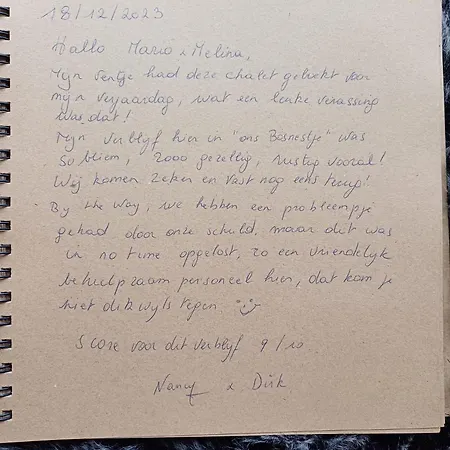 18/12/2023
Hallo Mario & Melina,
Mijn ventje had deze chalet geboekt voor
mijn verjaardag, wat een leuke verassing
was dat!
Mijn verblijf hier in "ons Bosnestje" was
subliem, zooo gezellig, rustig vooral!
Wij komen zeker en vast nog eens terug!
By the way, we hebben een probleempje
gehad door onze schuld, maar dit was
in no time opgelost, zo een vriendelijk
behulpzaam personeel hier, dat kom je
niet dikwijls tegen
Score voor dit verblijf 9/10
Nancy & Dirk